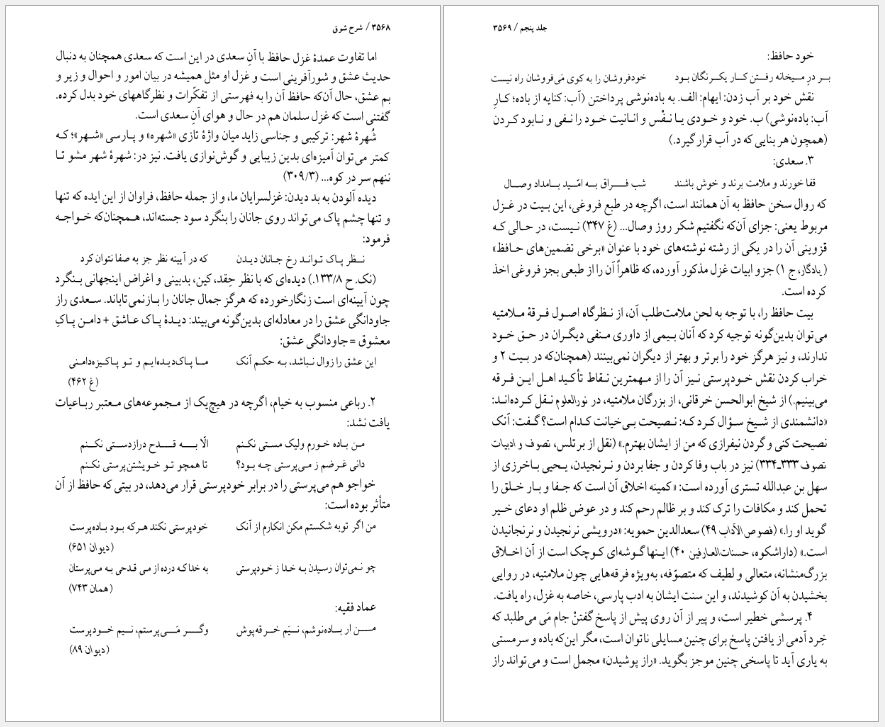 ۳۵۶۸ / شرح شوق
اما تفاوت عمدهٔ غزل حافظ با آنِ سعدی در این است که سعدی همچنان به دنبال
حدیث عشق و شورآفرینی است و غزل او مثل همیشه در بیان امور و احوال و زیر و
بم عشق، حال آن‌که حافظ آن را به فهرستی از تفکّرات و نظرگاههای خود بدل کرده.
گفتنی است که غزل سلمان هم در حال و هوای آنِ سعدی است.
شُهرهٔ شهر: ترکیبی و جناسی زاید میان واژهٔ تازی «شهره» و پارسی «شهر»؛ که
کمتر می‌توان آمیزه‌ای بدین زیبایی و گوش‌نوازی یافت. نیز در: شهرهٔ شهر مشو تا
ننهم سر در کوه... (۳۰۹/۳)
دیده آلودن به بد دیدن: غزلسرایان ما، و از جمله حافظ، فراوان از این ایده که تنها
و تنها چشم پاک می‌تواند روی جانان را بنگرد سود جسته‌اند، همچنان‌که خواجه
فرمود:
نظر پاک تواند رخ جانان دیدن که در آیینه نظر جز به صفا نتوان کرد
(نک. ح ۱۳۳/۸.) دیده‌ای که با نظر حِقد، کین، بدبینی و اغراض اینجهانی بنگرد
چون آیینه‌ای است زنگارخورده که هرگز جمال جانان را بازنمی‌تاباند. سعدی راز
جاودانگی عشق را در معادله‌ای بدین‌گونه می‌بیند: دیدهٔ پاک عاشق + دامن پاکِ
معشوق = جاودانگی عشق:
این عشق را زوال نباشد، به حکم آنک ما پاک‌دیده‌ایم و تو پاکیزه‌دامنی
(غ ۴۶۲)
۲. رباعی منسوب به خیام، اگرچه در هیچ‌یک از مجموعه‌های معتبر رباعیات
یافت نشد:
من باده خورم ولیک مستی نکنم الّا به قدح درازدستی نکنم
دانی غرضم ز می‌پرستی چه بود؟ تا همچو تو خویشتن‌پرستی نکنم
خواجو هم می‌پرستی را در برابر خودپرستی قرار می‌دهد، در بیتی که حافظ از آن
متأثر بوده است:
من اگر توبه شکستم مکن انکارم از آنک خودپرستی نکند هرکه بود باده‌پرست
(دیوان ۶۵۱)
چو نمی‌توان رسیدن به خدا ز خودپرستی به خدا که درده از می قدحی به می‌پرستان
(همان ۷۴۳)
عماد فقیه:
من ار باده‌نوشم، نیَم خرقه‌پوش وگر می‌پرستم، نیم خودپرست
(دیوان ۸۹)
جلد پنجم / ۳۵۶۹
خود حافظ:
بر درِ میخانه رفتن کار یکرنگان بود خودفروشان را به کوی می‌فروشان راه نیست
نقش خود بر آب زدن: ایهام: الف. به باده‌نوشی پرداختن (آب: کنایه از باده؛ کارِ
آب: باده‌نوشی) ب. خود و خودی یا نَفْس و انانیت خود را نفی و نابود کردن
(همچون هر بنایی که در آب قرار گیرد.)
۳. سعدی:
قفا خورند و ملامت برند و خوش باشند شب فراق به امّید بامداد وصال
که روال سخن حافظ به آن همانند است، اگرچه در طبع فروغی، این بیت در غزل
مربوط یعنی: جزای آن‌که نگفتیم شکر روز وصال... (غ ۳۴۷) نیست، در حالی که
قزوینی آن را در یکی از رشته نوشته‌های خود با عنوان «برخی تضمین‌های حافظ»
(یادگار، ج ۱) جزو ابیات غزل مذکور آورده، که ظاهراً آن را از طبعی بجز فروغی اخذ
کرده است.
بیت حافظ را، با توجه به لحن ملامت‌طلب آن، از نظرگاه اصول فرقهٔ ملامتیه
می‌توان بدین‌گونه توجیه کرد که آنان بیمی از داوری منفی دیگران در حق خود
ندارند، و نیز هرگز خود را برتر و بهتر از دیگران نمی‌بینند (همچنان‌که در بیت ۲ و
خراب کردن نقش خودپرستی نیز آن را از مهمترین نقاط تأکید اهل این فرقه
می‌بینیم.) از شیخ ابوالحسن خرقانی، از بزرگان ملامتیه، در نورالعلوم نقل کرده‌اند:
«دانشمندی از شیخ سؤال کرد که: نصیحت بی‌خیانت کدام است؟ گفت: آنک
نصیحت کنی و گردن نیفرازی که من از ایشان بهترم.» (نقل از برتلس، تصوف و ادبیات
تصوف ۳۳۳ـ۳۳۴) نیز در باب وفا کردن و جفا بردن و نرنجیدن، یحیی باخرزی از
سهل بن عبدالله تستری آورده است: «کمینه اخلاق آن است که جفا و بار خلق را
تحمل کند و مکافات را ترک کند و بر ظالم رحم کند و در عوض ظلم او دعای خیر
گوید او را.» (فصوص‌الآداب ۴۹) سعدالدین حمویه: «درویشی نرنجیدن و نرنجانیدن
است.» (داراشکوه، حسنات‌العارفین ۴۰) اینها گوشه‌ای کوچک است از آن اخلاق
بزرگ‌منشانه، متعالی و لطیف که متصوّفه، به‌ویژه فرقه‌هایی چون ملامتیه، در روایی
بخشیدن به آن کوشیدند، و این سنت ایشان به ادب پارسی، خاصه به غزل، راه یافت.
۴. پرسشی خطیر است، و پیر از آن روی پیش از پاسخ گفتنْ جام می می‌طلبد که
خِرد آدمی از یافتن پاسخ برای چنین مسایلی ناتوان است، مگر این‌که باده و سرمستی
به یاری آید تا پاسخی چنین موجز بگوید. «راز پوشیدن» مجمل است و می‌تواند راز